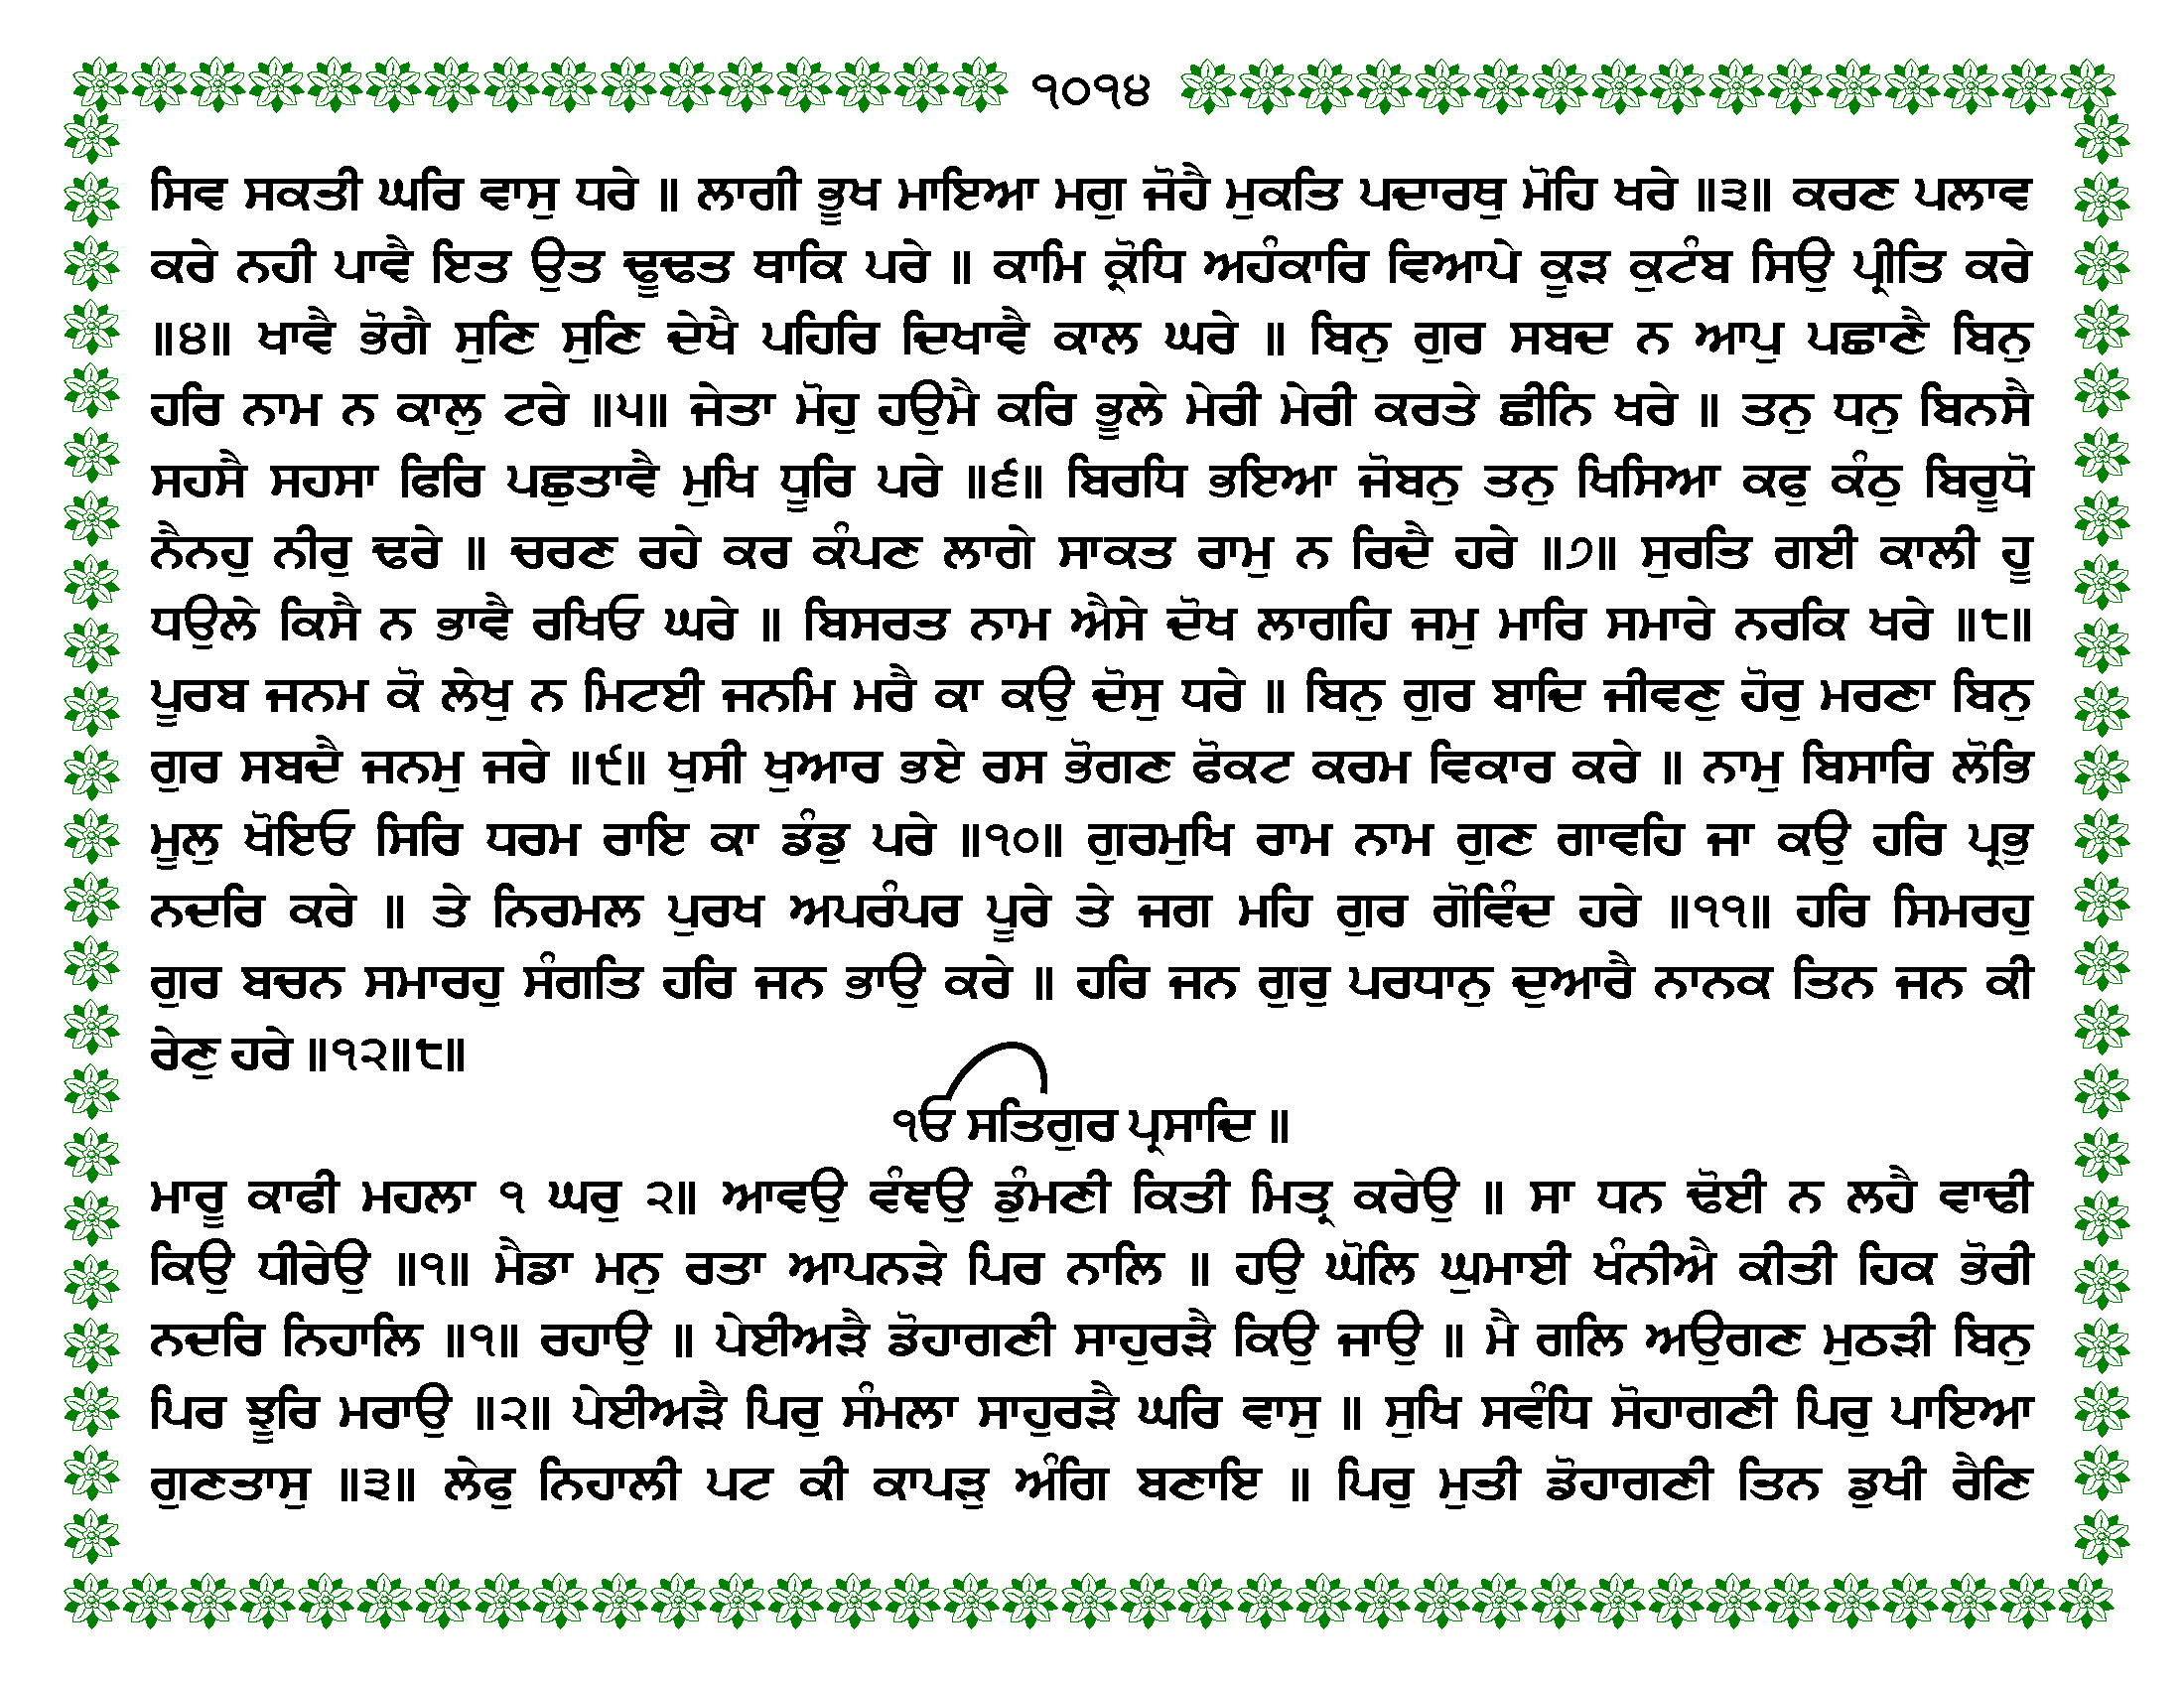 ੧੦੧੪
ਸਿਵ ਸਕਤੀ ਘਰਿ ਵਾਸੁ ਧਰੇ ॥ ਲਾਗੀ ਭੂਖ ਮਾਇਆ ਮਗੁ ਜੋਹੈ ਮੁਕਤਿ ਪਦਾਰਥੁ ਮੋਹਿ ਖਰੇ ॥੩॥ ਕਰਣ ਪਲਾਵ
ਕਰੇ ਨਹੀ ਪਾਵੈ ਇਤ ਉਤ ਢੂਢਤ ਥਾਕਿ ਪਰੇ ॥ ਕਾਮਿ ਕ੍ਰੋਧਿ ਅਹੰਕਾਰਿ ਵਿਆਪੇ ਕੂੜ ਕੁਟੰਬ ਸਿਉ ਪ੍ਰੀਤਿ ਕਰੇ
॥੪॥ ਖਾਵੈ ਭੋਗੈ ਸੁਣਿ ਸੁਣਿ ਦੇਖੈ ਪਹਿਰਿ ਦਿਖਾਵੈ ਕਾਲ ਘਰੇ ॥ ਬਿਨੁ ਗੁਰ ਸਬਦ ਨ ਆਪੁ ਪਛਾਣੈ ਬਿਨੁ
ਹਰਿ ਨਾਮ ਨ ਕਾਲੁ ਟਰੇ ॥੫॥ ਜੇਤਾ ਮੋਹੁ ਹਉਮੈ ਕਰਿ ਭੂਲੇ ਮੇਰੀ ਮੇਰੀ ਕਰਤੇ ਛੀਨਿ ਖਰੇ ॥ ਤਨੁ ਧਨੁ ਬਿਨਸੈ
ਸਹਸੈ ਸਹਸਾ ਫਿਰਿ ਪਛੁਤਾਵੈ ਮੁਖਿ ਧੂਰਿ ਪਰੇ ॥੬॥ ਬਿਰਧਿ ਭਇਆ ਜੋਬਨੁ ਤਨੁ ਖਿਸਿਆ ਕਫੁ ਕੰਠੁ ਬਿਰੂਧੋ
ਨੈਨਹੁ ਨੀਰੁ ਢਰੇ ॥ ਚਰਣ ਰਹੇ ਕਰ ਕੰਪਣ ਲਾਗੇ ਸਾਕਤ ਰਾਮੁ ਨ ਰਿਦੈ ਹਰੇ ॥੭॥ ਸੁਰਤਿ ਗਈ ਕਾਲੀ ਹੂ
ਧਉਲੇ ਕਿਸੈ ਨ ਭਾਵੈ ਰਖਿਓ ਘਰੇ ॥ ਬਿਸਰਤ ਨਾਮ ਐਸੇ ਦੋਖ ਲਾਗਹਿ ਜਮੁ ਮਾਰਿ ਸਮਾਰੇ ਨਰਕਿ ਖਰੇ ॥੮॥
ਪੂਰਬ ਜਨਮ ਕੋ ਲੇਖੁ ਨ ਮਿਟਈ ਜਨਮਿ ਮਰੈ ਕਾ ਕਉ ਦੋਸੁ ਧਰੇ ॥ ਬਿਨੁ ਗੁਰ ਬਾਦਿ ਜੀਵਣੁ ਹੋਰੁ ਮਰਣਾ ਬਿਨੁ
ਗੁਰ ਸਬਦੈ ਜਨਮੁ ਜਰੇ ॥੯॥ ਖੁਸੀ ਖੁਆਰ ਭਏ ਰਸ ਭੋਗਣ ਫੋਕਟ ਕਰਮ ਵਿਕਾਰ ਕਰੇ ॥ ਨਾਮੁ ਬਿਸਾਰਿ ਲੋਭਿ
ਮੂਲੁ ਖੋਇਓ ਸਿਰਿ ਧਰਮ ਰਾਇ ਕਾ ਡੰਡੁ ਪਰੇ ॥੧੦॥ ਗੁਰਮੁਖਿ ਰਾਮ ਨਾਮ ਗੁਣ ਗਾਵਹਿ ਜਾ ਕਉ ਹਰਿ ਪ੍ਰਭੁ
ਨਦਰਿ ਕਰੇ ॥ ਤੇ ਨਿਰਮਲ ਪੁਰਖ ਅਪਰੰਪਰ ਪੂਰੇ ਤੇ ਜਗ ਮਹਿ ਗੁਰ ਗੋਵਿੰਦ ਹਰੇ ॥੧੧॥ ਹਰਿ ਸਿਮਰਹੁ
ਗੁਰ ਬਚਨ ਸਮਾਰਹੁ ਸੰਗਤਿ ਹਰਿ ਜਨ ਭਾਉ ਕਰੇ ॥ ਹਰਿ ਜਨ ਗੁਰੁ ਪਰਧਾਨੁ ਦੁਆਰੈ ਨਾਨਕ ਤਿਨ ਜਨ ਕੀ
ਰੇਣੁ ਹਰੇ ॥੧੨॥੮॥
ੴ ਸਤਿਗੁਰ ਪ੍ਰਸਾਦਿ ॥
ਮਾਰੂ ਕਾਫੀ ਮਹਲਾ ੧ ਘਰੁ ੨॥ ਆਵਉ ਵੰਞਉ ਡੁੰਮਣੀ ਕਿਤੀ ਮਿਤ੍ਰ ਕਰੇਉ ॥ ਸਾ ਧਨ ਢੋਈ ਨ ਲਹੈ ਵਾਢੀ
ਕਿਉ ਧੀਰੇਉ ॥੧॥ ਮੈਡਾ ਮਨੁ ਰਤਾ ਆਪਨੜੇ ਪਿਰ ਨਾਲਿ ॥ ਹਉ ਘੋਲਿ ਘੁਮਾਈ ਖੰਨੀਐ ਕੀਤੀ ਹਿਕ ਭੋਰੀ
ਨਦਰਿ ਨਿਹਾਲਿ ॥੧॥ ਰਹਾਉ ॥ ਪੇਈਅੜੈ ਡੋਹਾਗਣੀ ਸਾਹੁਰੜੈ ਕਿਉ ਜਾਉ ॥ ਮੈ ਗਲਿ ਅਉਗਣ ਮੁਠੜੀ ਬਿਨੁ
ਪਿਰ ਝੂਰਿ ਮਰਾਉ ॥੨॥ ਪੇਈਅੜੈ ਪਿਰੁ ਸੰਮਲਾ ਸਾਹੁਰੜੈ ਘਰਿ ਵਾਸੁ ॥ ਸੁਖਿ ਸਵੰਧਿ ਸੋਹਾਗਣੀ ਪਿਰੁ ਪਾਇਆ
ਗੁਣਤਾਸੁ ॥੩॥ ਲੇਫੁ ਨਿਹਾਲੀ ਪਟ ਕੀ ਕਾਪੜੁ ਅੰਗਿ ਬਣਾਇ ॥ ਪਿਰੁ ਮੁਤੀ ਡੋਹਾਗਣੀ ਤਿਨ ਡੁਖੀ ਰੈਣਿ